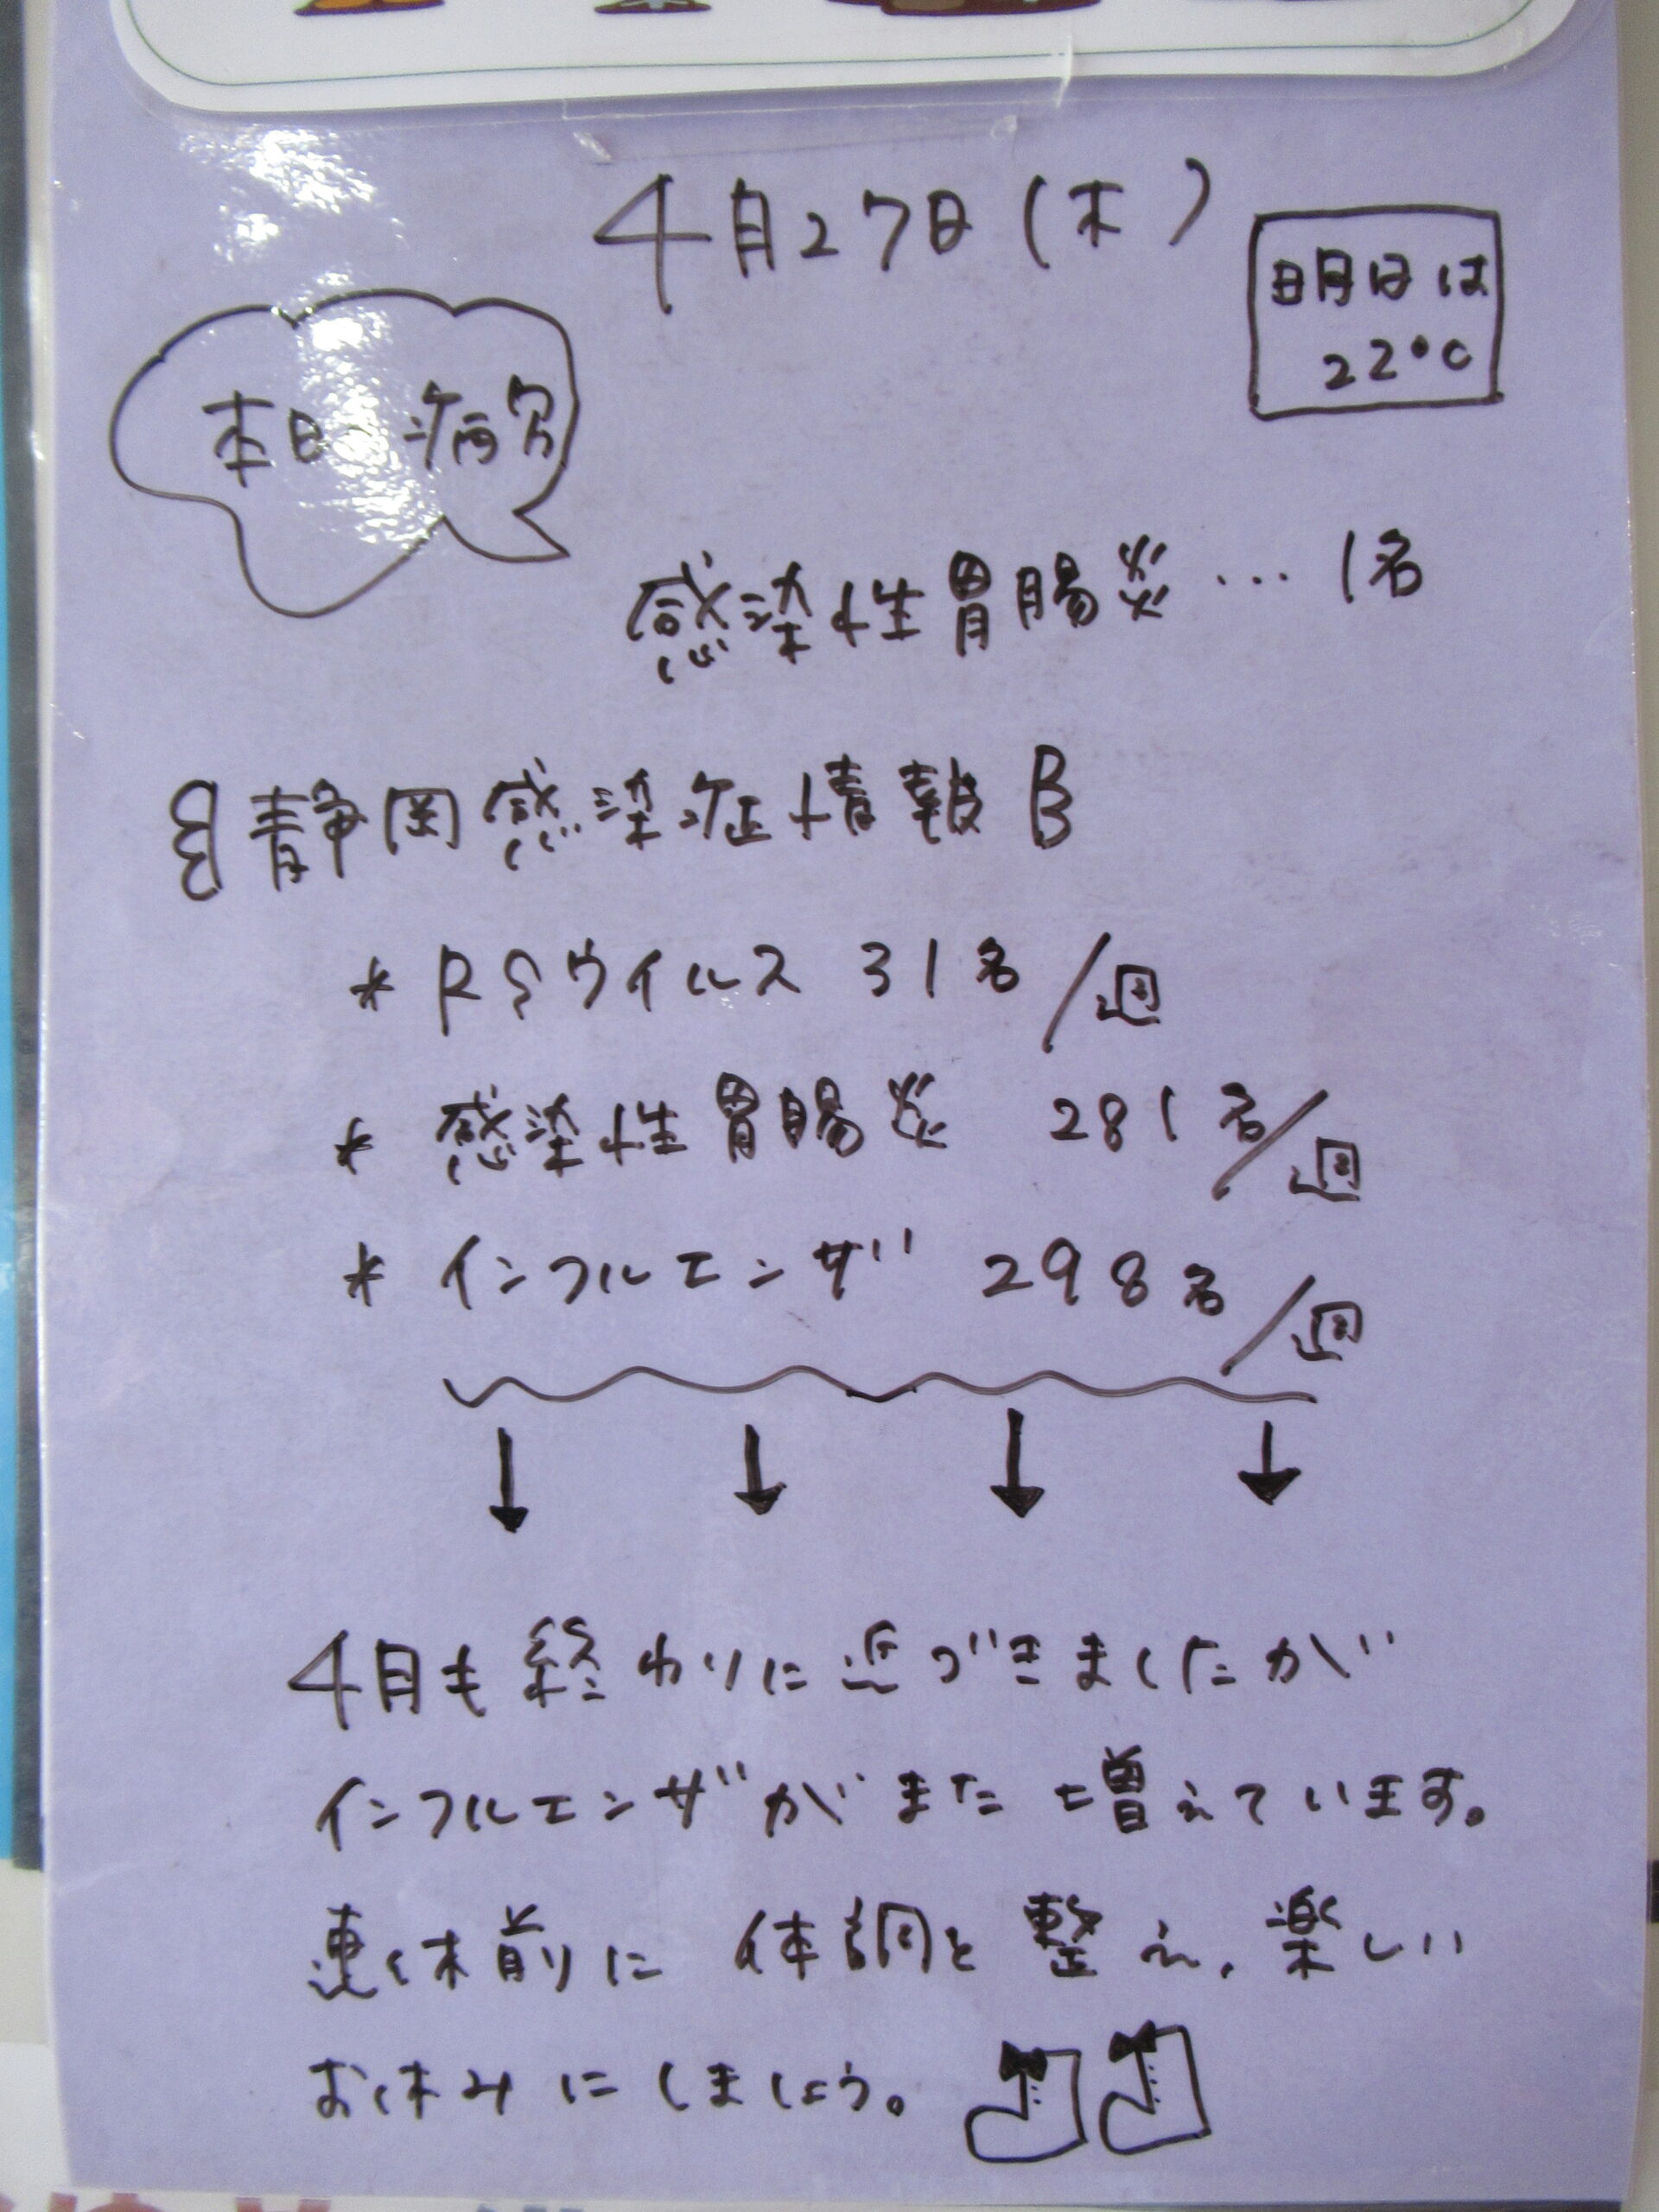 4月27日(木)
明日は
22℃
本日の病欠
感染性胃腸炎…1名
静岡感染症情報
* RSウイルス 31名/週
* 感染性胃腸炎 281名/週
* インフルエンザ 298名/週
4月も終わりに近づきましたが
インフルエンザがまた増えています。
連休前に体調を整え、楽しい
お休みにしましょう。